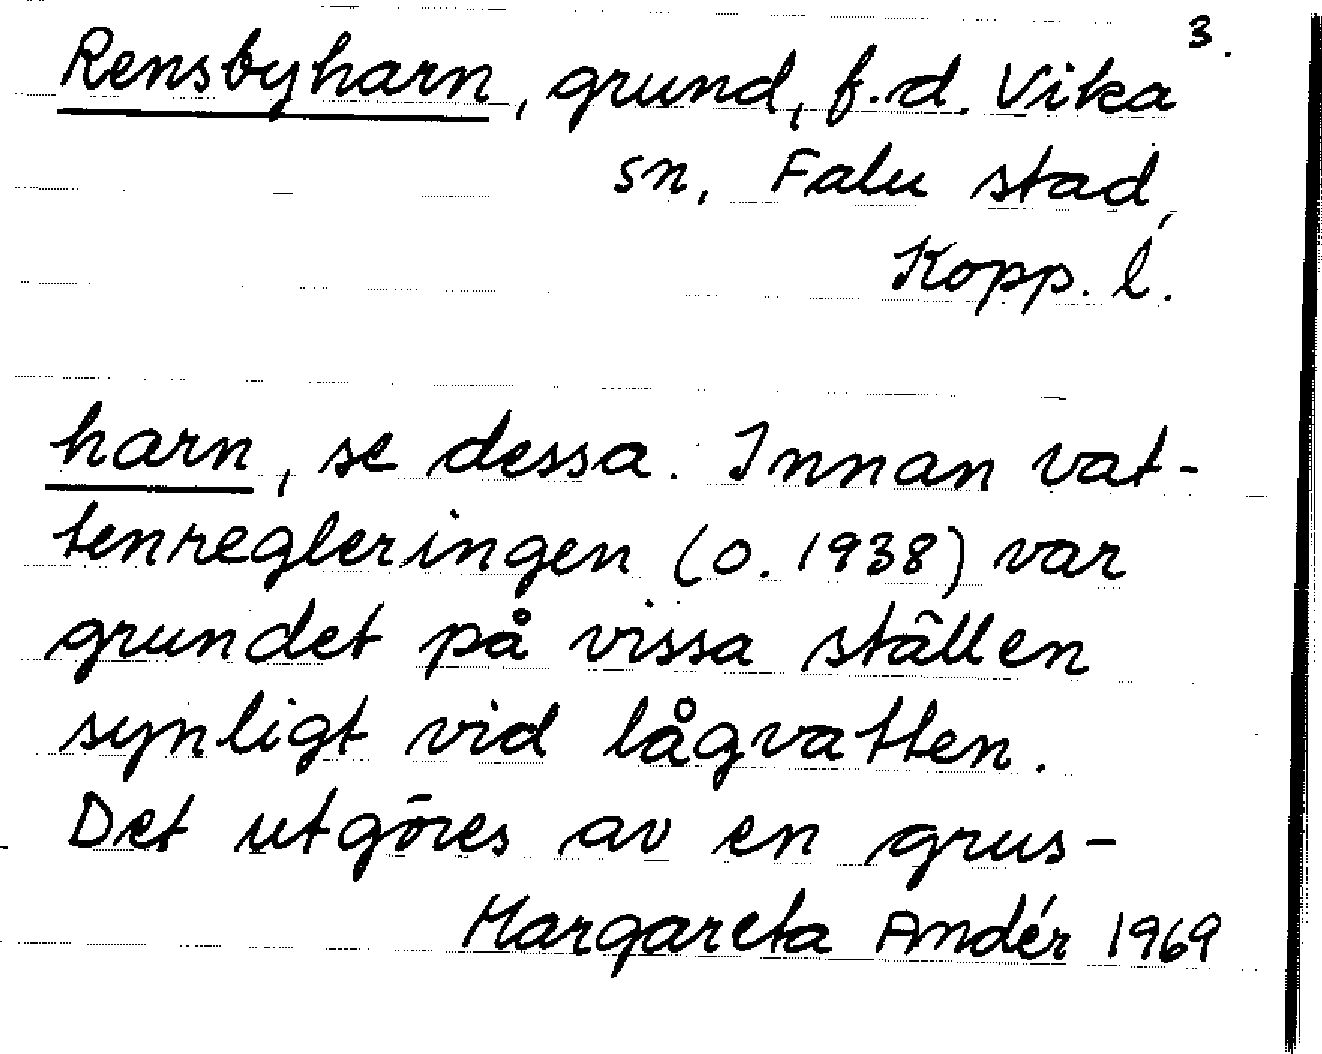 3.
Rensbyharn, grund, f.d. Vika
sn, Falu stad,
Kopp. l.
harn, se dessa. Innan vat-
tenregleringen (o. 1938) var
grundet på vissa ställen
synligt vid lågvatten.
Det utgöres av en grus-
Margareta Andér 1969